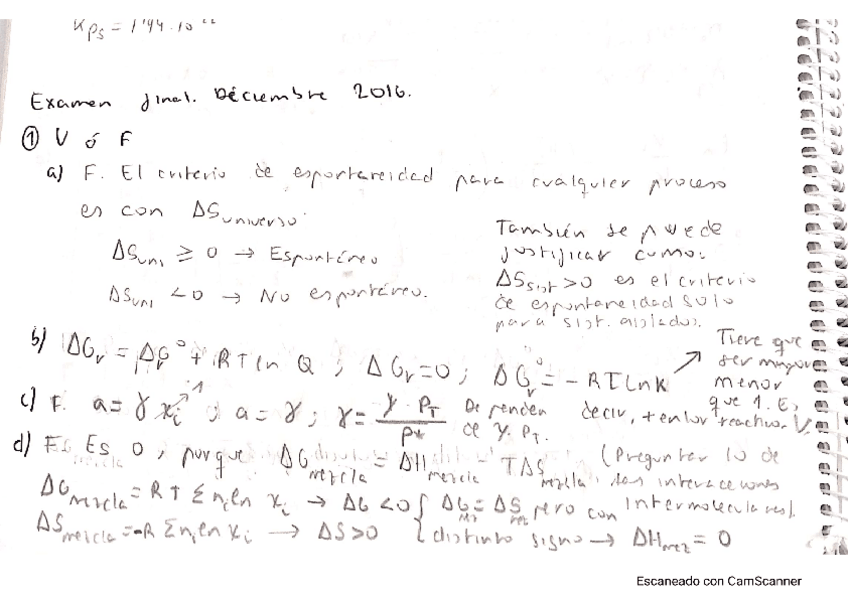 Kps = 1'44.10
Examen final. Déciembre 2016.
① V ó F
a) F. El criterio de espontaneidad para cualquier proceso
es con ΔSuniverso.
ΔSuni ≥ 0 → Espontáneo
ΔSuni < 0 → No espontáneo.
También se puede
justificar como:
ΔSsist > 0 es el criterio
de espontaneidad solo
para sist. aislados.
b) ΔGr = ΔGr° + RTln Q ; ΔGr = 0 ; ΔGr° = - RTLnK ↗
Tiene que
ser mayor o
menor
que 1. E,
c) F. a = γ xi ↗1 ; a = γ ; γ = y · PT / P* Dependen de y, PT.
decir, + en los reactivos V.
d) F. Es 0, porque ΔGmezcla = ΔHmezcla TΔSmezcla. (Preguntar lo de
las interacciones
intermoleculares).
ΔGmezcla = RT Σni ln xi → ΔG < 0 { ΔGmez = ΔSmez pero con
ΔSmezcla = -R Σni ln xi → ΔS > 0 { distinto signo → ΔHmez = 0
Escaneado con CamScanner